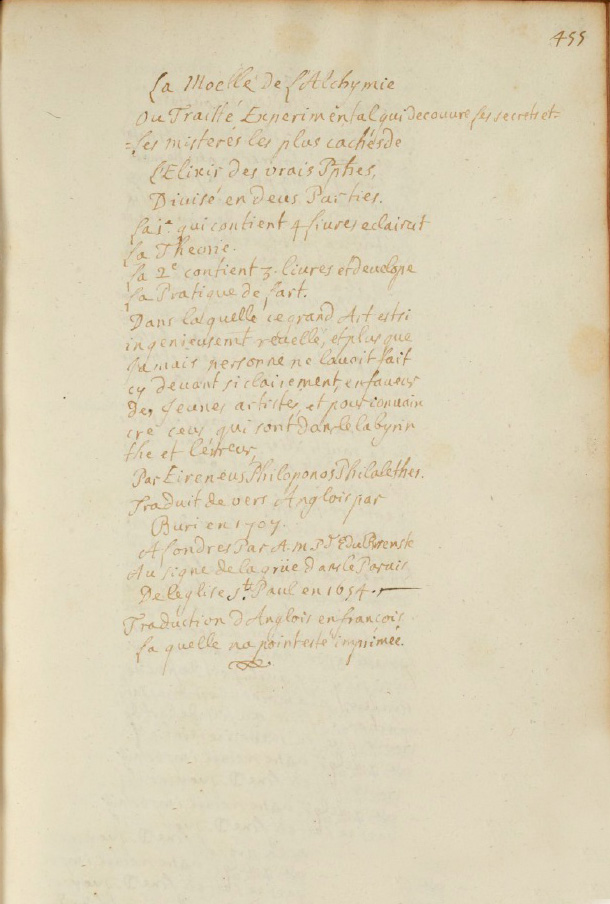 455
La Moelle De L'Alchymie
Ou Traitté Experimental qui decouvre les secrets et=
=les misteres les plus cachés de
L'Elixir des vrais Pphes,
Divisé en deus Parties.
La 1.e qui contient 4 livres eclaircit
la Theorie.
La 2e contient 3. livres et devologe
la Pratique de l'art.
Dans laquelle ce grand Art est si
ingenieusemt revellé, et plus que
jamais personne ne l'avoit fait
cy devant si clairement, en faveur
Des jeunes artistes, et pour convain
cre ceus qui sont dans le labyrin
the et l'erreur,
Par Eireneus Philoponos Philalethes.
Traduit de vers Anglois par
Buri en 1707.
A Londres Par A. M. Pr
Au signe de la grüe dans le Parvis
De l'eglise St. Paul en 1654.
Traduction d'Anglois en françois
la quelle na point esté imprimée.